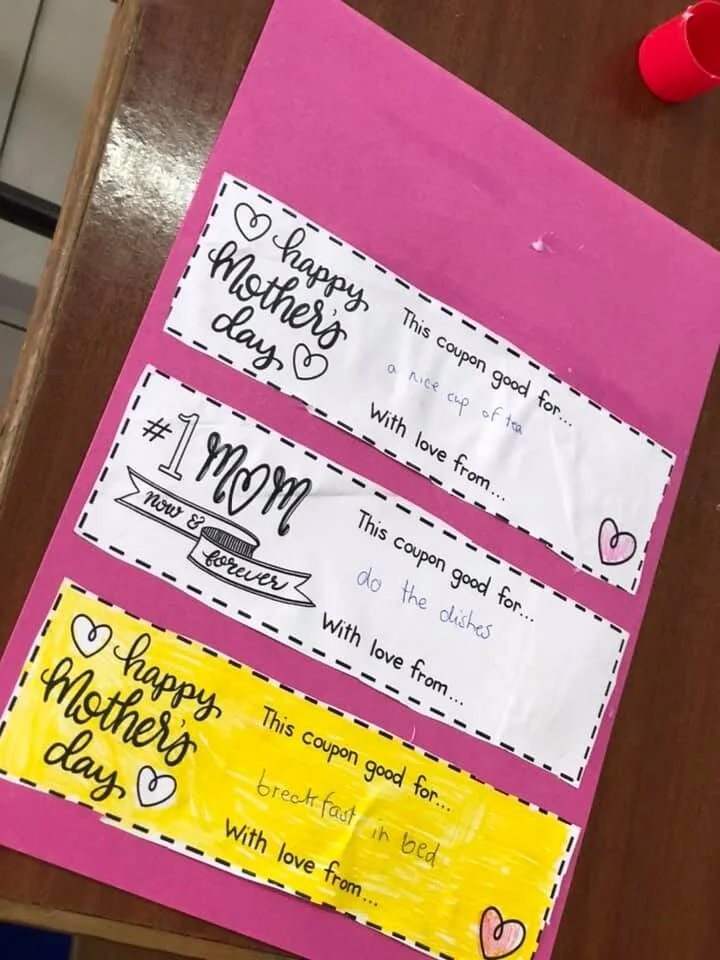 happy
Mother's
day
This coupon good for...
a nice cup of tea
With love from...
#1 MOM
now &
forever
This coupon good for...
do the dishes
With love from...
happy
Mother's
day
This coupon good for...
breakfast in bed
With love from...